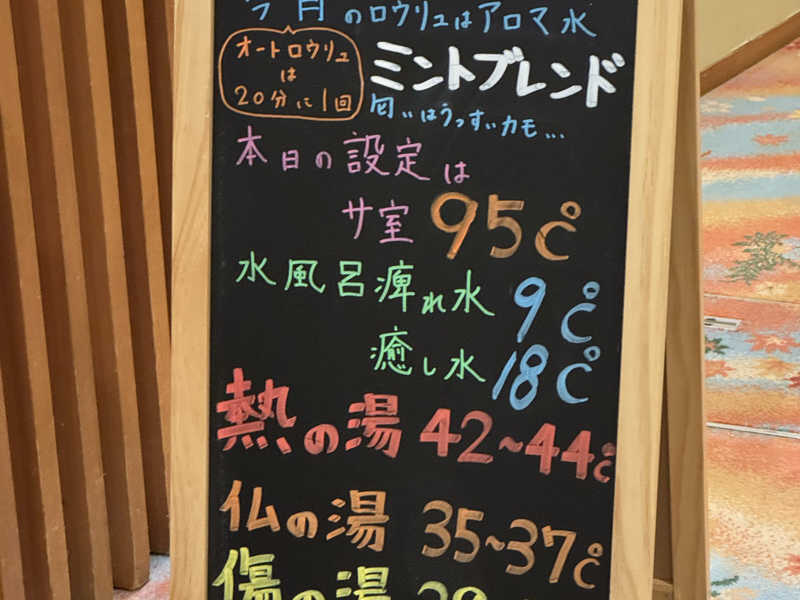 今月のロウリュはアロマ水
オートロウリュ
は
20分に1回
ミントブレンド
匂いはうっすぃカモ...
本日の設定は
サ室 95℃
水風呂痺れ水 9℃
癒し水 18℃
熱の湯 42~44℃
仏の湯 35~37℃
傷の湯